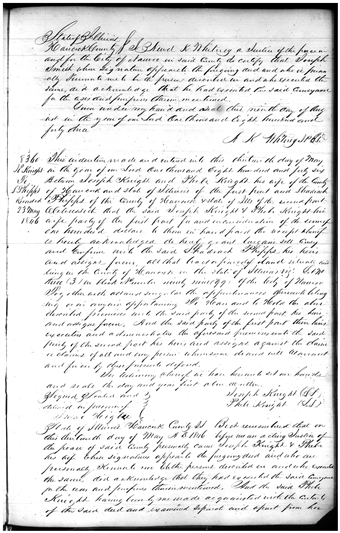 State of Illinois
Hancock County } ss I Newel K Whitney a Justice of the peace in
and for the City of Nauvoo in said County do certify that Joseph
Smith whose signature appears to the foregoing deed and who is person
ally known to me to be the person described in and who executed the
same, did acknowledge that he had executed the said Conveyance
for the uses and purposes therein mentioned.
Given under my hand and seal this ninth day of May
in the year of our Lord One thousand Eight hundred and
forty three
N. K. Whitney
8360
J Knight
To
S Phipps
Recorded
23 May
1846
This indenture, made and entered into this thirteenth day of May
in the year of our Lord One thousand Eight hundred and forty six
Between Joseph Knight and Phebe Knight his wife of the County
of Hancock and State of Illinois of the first part and Shadrach
Phipps of the County of Hancock & State of Ills of the second part
Witnesseth that the said Joseph Knight & Phebe Knight his
wife party of the first part for and in consideration of the sum of
one hundred dollars to them in hand paid the receipt whereof
is hereby acknowledged do hereby grant bargain sell Convey
and Confirm unto the said Shadrach Phipps his heirs
and assigns forever, all that
lying in the County of Hancock in the State of Illinois
three (3) in Block Number of the City of Nauvoo
Together with all and singular the appurtenances thereunto belong
ing or in any wise appertaining To Have and to Hold the above
described premises unto the said party of the second part his heirs
and assigns forever, And the said party of the first part their heirs
executors and administrators the aforesaid premises unto the said
party of the second part his heirs and assigns against the claim
or claims of all and every person whomsoever do and will Warrant
and forever by these presents defend.
In testimony whereof we have hereunto set our hands
and seals the day and year first above written
Signed Sealed and
delivered in presence of
Joseph Knight (LS)
Phebe Knight (LS)
State of Illinois Hancock County ss Be it remembered that on
this thirteenth day of May A D 1846 before me an acting Justice of
the peace of said County personally came Joseph Knight & Phebe
his wife whose signatures appear to the foregoing deed and who are
personally known to me to be the persons described in and who executed
the same, did acknowledge that they had executed the said Conveyance
for the uses and purposes therein mentioned. And the said Phebe
Knight having been by me made acquainted with the contents
of the said deed and examined separate and apart from her